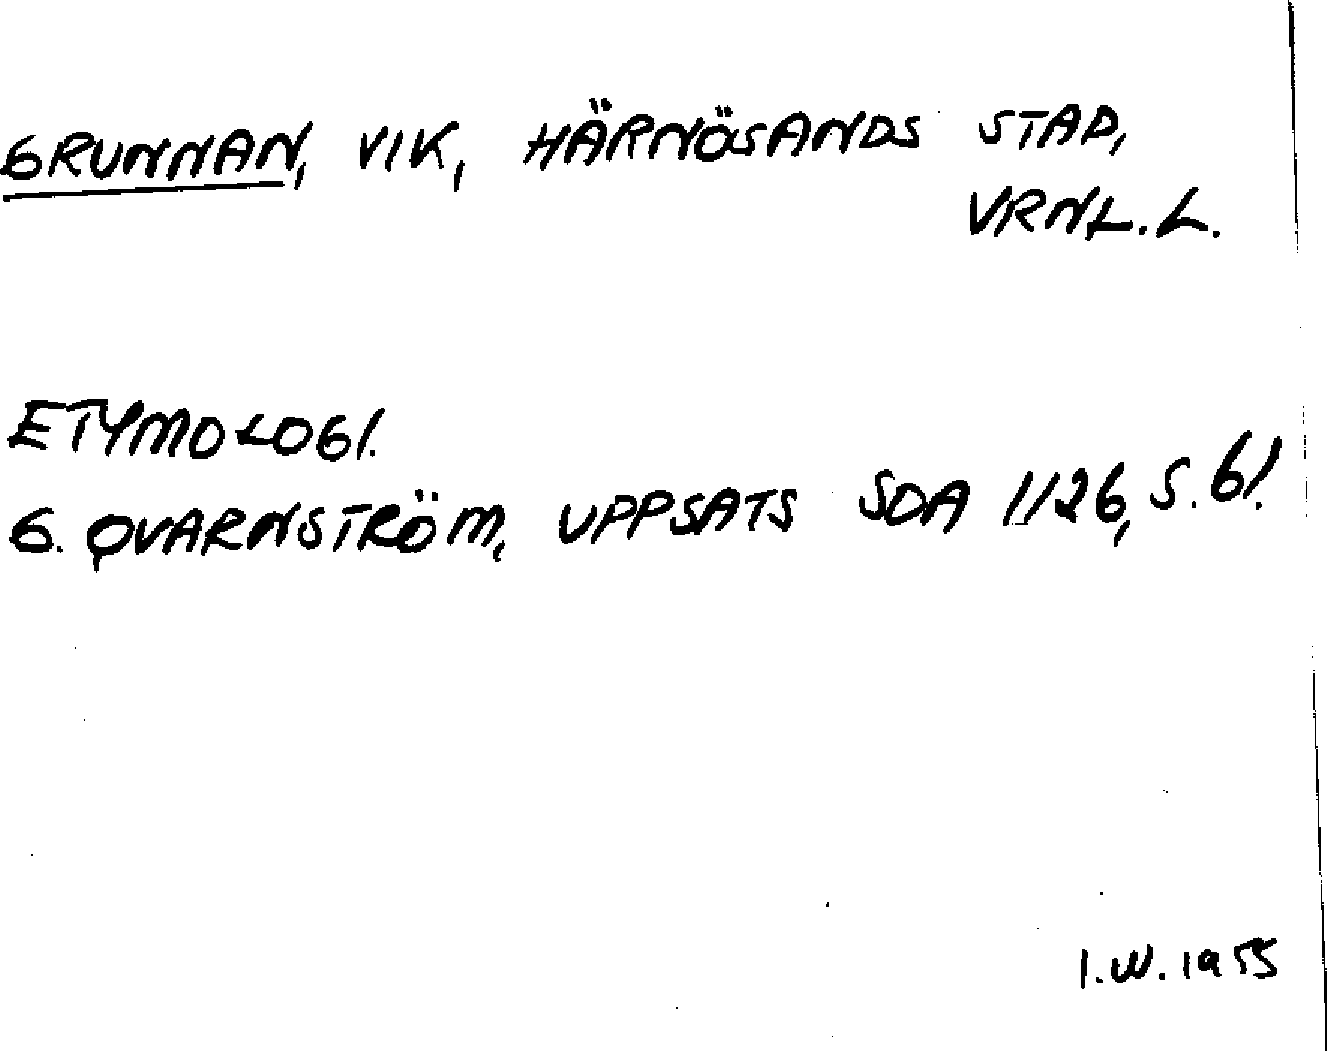 GRUNNAN, VIK, HÄRNÖSANDS STAD,
VRNL. L.
ETYMOLOGI.
G. QVARNSTRÖM, UPPSATS SOA 1126, S. 61.
I.W. 1955